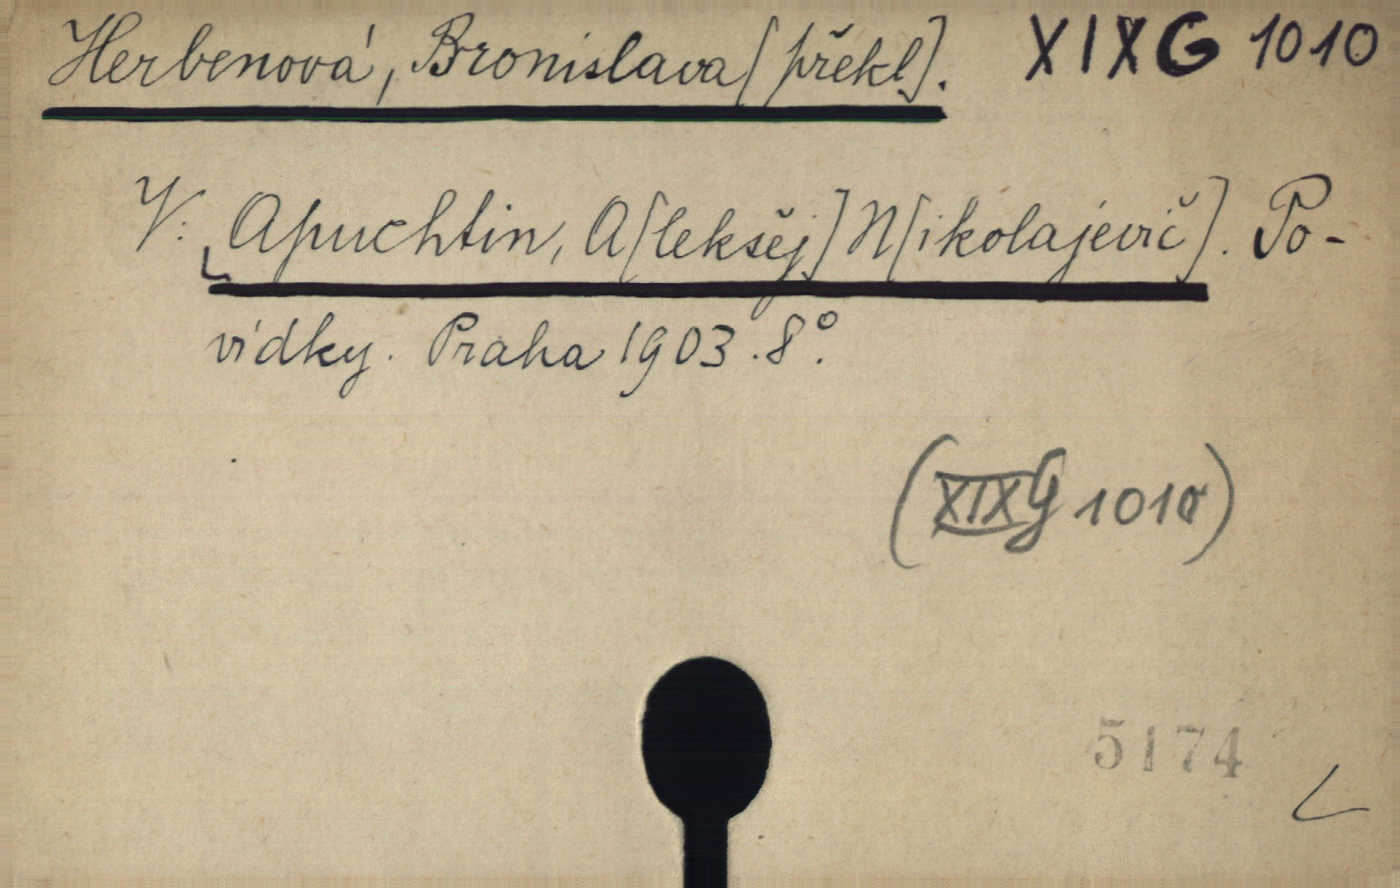 Herbenová, Bronislava [překl]. XIX G 1010
V: Apuchtin, A[leksěj] N[ikolajevič]. Po-
vídky. Praha 1903. 8°.
(XIX G 1010)
5174